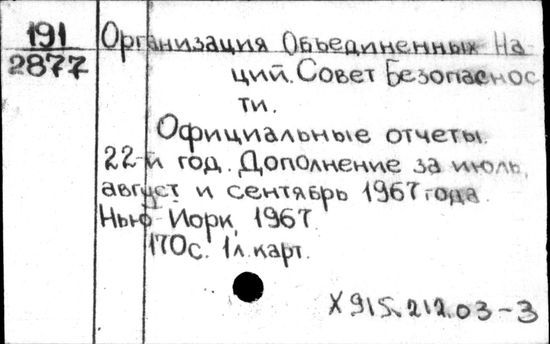 191
2877
Организация Объединенных На
ций. Совет Безопаснос
ти.
Официальные отчеты.
22-й год. Дополнение за июль,
август и сентябрь 1967 года.
Нью-Йорк, 1967
170с. 1л. карт.
X 915.212.03-3